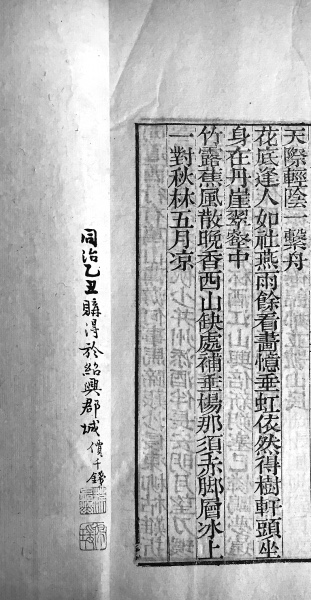 天際輕陰一檠舟
花底逢人如社燕雨餘看畫憶垂虹依然得樹軒頭坐
身在丹崖翠壑中
竹露蕉風散晚香西山缺處補垂楊那須赤脚層冰上
一對秋林五月凉
同治乙丑購得於紹興郡城價千錢